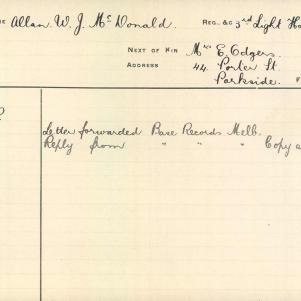 E Allan W. J. McDonald. REG. &C 3rd Light Ho
NEXT OF KIN Mrs E. Odgers.
ADDRESS 44 Porter St.
Parkside.
Letter forwarded Base Records Melb.
Reply from " " " Copy a